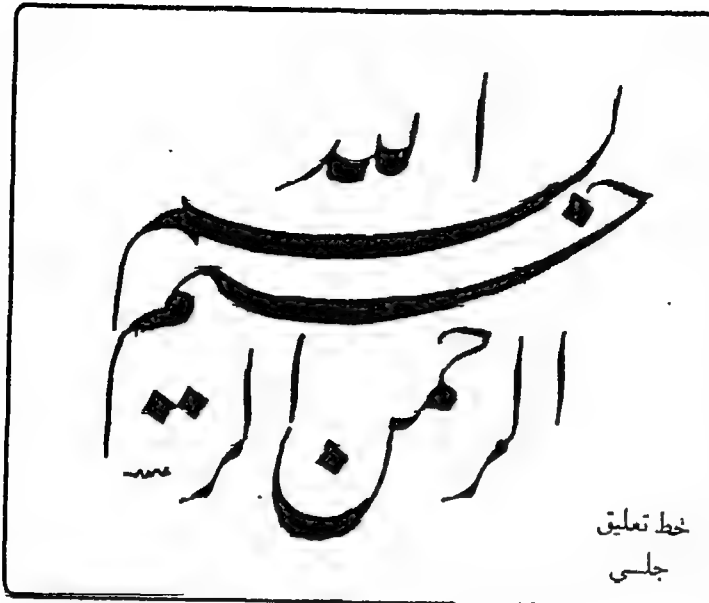 بسم الله
الرحمن الرحيم
خط تعليق
جلسي